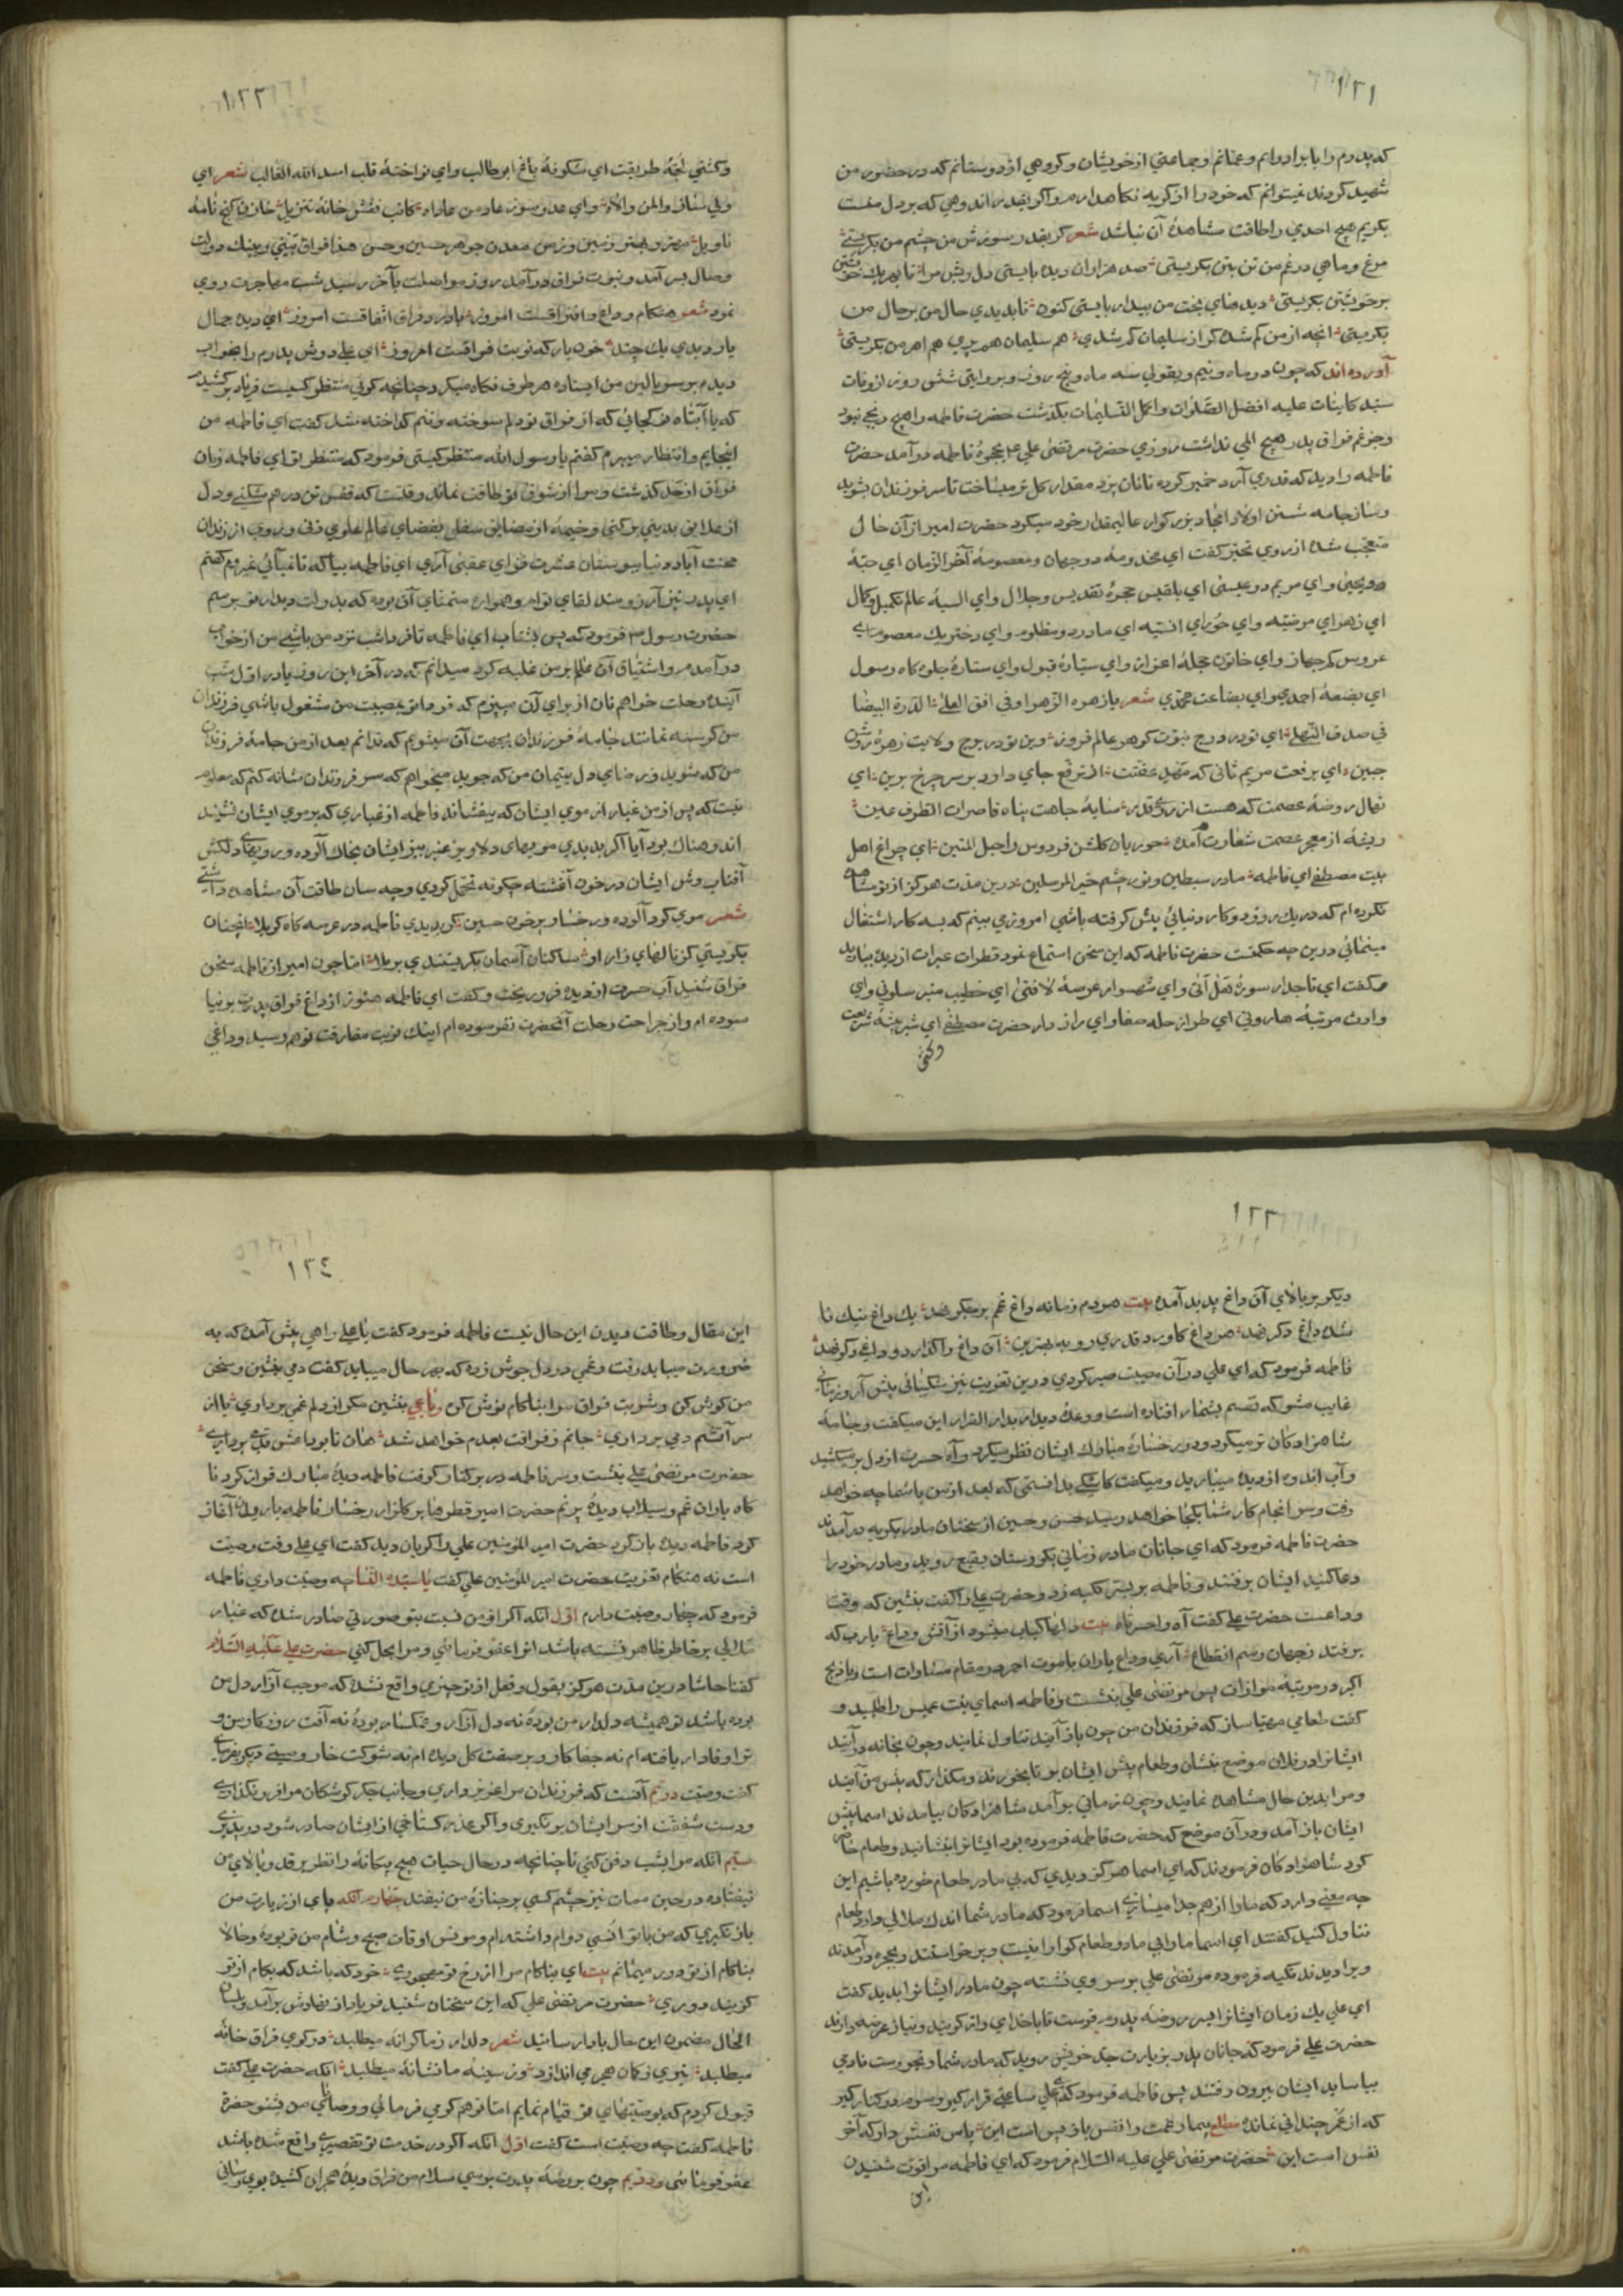 ١٣١
که پدرم را با برادرانم و عمانم و جماعتی از خویشان و گروهی از دوستانم که در حضور من
شهید کردند نمیتوانم که خود را از گریه نگاهدارم و اگر بقدر اندوهی که بر دل منست
بگریم هیچ احدی را طاقت مشاهدهٔ آن نباشد شعر گر بقدر سوزش من چشم من بگریستی
مرغ و ماهی در غم من تن بتن بگریستی صد هزاران دیده بایستی دل ریش مرا تا بهر یک خویشتن
بر خویشتن بگریستی دیدهای بخت من بیدار بایستی کنون تا بدیدی حال من بر حال من
بگریستی آنچه از من گم شده گر از سلیمان گم شدی هم سلیمان هم پری هم اهرمن بگریستی
آورده اند که چون دو ماه و نیم و بقولی سه ماه و پنج روز و بروایتی شش روز از وفات
سید کاینات علیه افضل الصلوات و اکمل التسلیمات بگذشت حضرت فاطمه را هیچ رنجی نبود
و جز غم فراق پدر هیچ المی نداشت روزی حضرت مرتضی علی ع بحجرهٔ فاطمه درآمد حضرت
فاطمه را دید که قدری آرد خمیر کرده تا نان پزد و مقداری گل تر میساخت تا سر فرزندان بشوید
و ساز جامه شستن اولاد امجاد بزرگوار عالیمقدار خود میکرد حضرت امیر از آن حال
متعجب شده از روی تحیر گفت ای مخدومهٔ دو جهان و معصومهٔ آخر الزمان ای حبهٔ
دو یحیی و ای مریم دو عیسی ای بلقیس حجرهٔ تقدیس و جلال و ای آسیهٔ عالم تکمیل و کمال
ای زهرای مرضیه و ای حورای انسیه ای مادر دو مظلوم و ای دختر یک معصوم ای
عروس کم جهاز و ای خاتون حجلهٔ اعزاز و ای سیارهٔ قبول و ای ستارهٔ جلوه گاه رسول
ای بضعهٔ احمدی و ای بضاعت محمدی شعر یا زهرة الزهراء فی افق العلی الدرة البیضا
فی صدف النهی ای تو در درج نبوت گوهر عالم فروز وین تو در برج ولایت زهرهٔ روشن
جبین ای برفعت مریم ثانی که مهد عفتت از ترفع جای دارد بر سر چرخ برین ای
نهال روضهٔ عصمت که هست از روی قدر سایهٔ جاهت پناه قاصرات الطرف عین
ریشهٔ از معجر عصمت شعارت آمده حوریان گلشن فردوس را حبل المتین ای چراغ اهل
بیت مصطفی ای فاطمه مادر سبطین و نور چشم خیر المرسلین درین مدت هرگز از تو مشاهده
نکرده ام که در یک روز دو کار دنیائی پیش گرفته باشی امروز می بینم که بسه کار اشتغال
مینمائی درین چه حکمتست حضرت فاطمه که این سخن استماع نمود قطرات عبرات از دیده بباریدن
و گفت ای تاجدار سورهٔ هل اتی و ای شهسوار عرصهٔ لا فتی ای خطیب منبر سلونی و ای
وارث مرتبهٔ هارونی ای طراز حله صفا و ای رازدار حضرت مصطفی ای شیر بیشهٔ شریعت
و کشتی
١٣٢
و کشتی لجهٔ طریقت ای شکوفهٔ باغ ابوطالب و ای نواختهٔ قلب اسد الله الغالب شعر ای
ولی ستان و المن والاه و ای عدو سوز عاد من عاداه کاتب نقش خانهٔ تنزیل خازن گنج نامهٔ
تاویل مهتر و بهتر زمین و زمن معدن جوهر حسین و حسن هذا فراق بینی و بینک دولت
وصال بسر آمد و نوبت فراق درآمد روز مواصلت بآخر رسید شب مهاجرت روی
نمود شعر هنگام وداع و افتراقست امروز با درد فراق اتفاقست امروز ای دیده جمال
یار دیدی یک چند خون بار که نوبت فراقست امروز ای علی دوش پدرم را بخواب
دیدم بر سر بالین من ایستاده هر طرف نگاه میکرد چنانچه گوئی منتظر کسیست فریاد برکشیدم
که یا ابتاه در کجائی که از فراق تو دلم سوخته و تنم گداخته شد گفت ای فاطمه من
اینجایم و انتظار میبرم گفتم یا رسول الله منتظر کیستی فرمود که منتظر توام ای فاطمه زمان
فراق از حد گذشت و مرا از شوق تو طاقت نماند وقتست که قفس تن در هم شکنی و دل
از علایق بدنی برکنی و خیمه از مضایق سفلی بفضای عالم علوی زنی و روی از زندان
محنت آباد دنیا ببوستان عشرت فزای عقبی آری ای فاطمه بیا که تا نیائی نمیروم گفتم
ای پدر من نیز آرزومند لقای توام و همواره متمنای آن بوده که بدولت دیدار تو برسم
حضرت رسول ص فرمود که پس بشتاب ای فاطمه تا فردا شب نزد من باشی من از خواب
درآمدم و اشتیاق آن عالم بر من غلبه کرد میدانم که در آخر این روز یا در اول شب
آینده رحلت خواهم نان از برای آن میپزم که فردا تو بمصیبت من مشغول باشی فرزندان
من گرسنه نمانند جامهٔ فرزندان بجهت آن میشویم که ندانم بعد از من جامهٔ فرزندان
من که شوید و رضای دل یتیمان من که جوید میخواهم که سر فرزندان شانه کنم که معلوم
نیست که پس از من غبار از موی ایشان که بیفشاند فاطمه از غباری که بر موی ایشان نشیند
اندوهناک بود آیا اگر بدیدی مویهای دلاویز عنبر بیز ایشان بخاک آلوده و رویهای دلکش
آفتاب وش ایشان در خون آغشته چگونه تحمل کردی و چه سان طاقت آن مشاهده داشتی
شعر موی گرد آلوده و رخسار پر خون حسین گر بدیدی فاطمه در عرصه گاه کربلا آنچنان
بگریستی کز نالهای زار او ساکنان آسمان بگریستندی برملا اما چون امیر از فاطمه سخن
فراق شنید آب حسرت از دیده فرو ریخت و گفت ای فاطمه هنوز از داغ فراق پدرت برنیا
سوده ام و از جراحت رحلت آنحضرت نفرسوده ام اینک نوبت مفارقت تو هم رسید و داغی
١٣٣
دیگر بر بالای آن داغ پدید آمده بیت هر دم زمانه داغ غم بر جگر نهد یک داغ نیک نا
شده داغ دگر نهد هر داغ کاورد قدری رو به بهترین آن داغ واگذارد و داغ دگر نهد
فاطمه فرمود که ای علی در آن مصیبت صبر کردی درین تعزیت نیز شکیبائی پیش آر و زمانی
غایب مشو که نفسم بشمار افتاده است و وعدهٔ دیدار بدار القرار این میگفت و جامهٔ
شاهزادگان تر میکرد و در رخسارهٔ مبارک ایشان نظر میکرد و آه حسرت از دل بر میکشید
و آب اندوه از دیده میبارید و میگفت کاشکی بدانستمی که بعد از من با شما چه خواهد
رفت و سرانجام کار شما بکجا خواهد رسید حسن و حسین از سخنان مادر بگریه درآمدند
حضرت فاطمه فرمود که ای جانان مادر زمانی بگورستان بقیع روید و مادر خود را
دعا کنید ایشان برفتند و فاطمه بر بستر تکیه زد و حضرت علی را گفت بنشین که وقت
وداعست حضرت علی گفت آه واحسرتاه بیت دلها کباب میشود از آتش وداع یا رب که
برفتد ز جهان رسم انقطاع آری وداع یاران با موت احمر در مقام مساوات است و با ذبح
اکبر در مرتبهٔ موازات پس مرتضی علی بنشست و فاطمه اسمای بنت عمیس را طلبید و
گفت طعامی مهیا ساز که فرزندان من چون باز آیند تناول نمایند و چون بخانه درآیند
ایشانرا در فلان موضع بنشان و طعام پیش ایشان بر تا بخورند و مگذار که پیش من آیند
و مرا بدین حال مشاهده نمایند و چون زمانی برآمد شاهزادگان بیامدند اسما پیش
ایشان باز آمد و در آن موضع که حضرت فاطمه فرموده بود ایشانرا بنشانید و طعام حاضر
کرد شاهزادگان فرمودند که ای اسما هرگز دیدی که بی مادر طعام خورده باشیم این
چه معنی دارد که ما را از هم جدا میسازی اسما فرمود که مادر شما اندک ملالی دارد طعام
تناول کنید گفتند ای اسما ما را بی مادر طعام گوارا نیست و برخواستند و بحجره درآمدند
و برا دیدند تکیه فرموده مرتضی علی بر سر وی نشسته چون مادر ایشانرا بدید گفت
ای علی یک زمان ایشانرا بسر روضهٔ پدرم فرست تا با خدای راز گویند و نیاز عرضه دارند
حضرت علی فرمود که جانان پدر بزیارت جد خویش روید که مادر شما رنجورست تا دمی
بیاساید ایشان بیرون رفتند پس فاطمه فرمود که ای علی ساعتی قرار گیر و سرم در کنار گیر
که از عمر چندانی نمانده مطلع بیمار غمت را نفس باز پسین است این پاس نفسش دار که آخر
نفس است این حضرت مرتضی علی علیه السلام فرمود که ای فاطمه مرا قوت شنیدن
این
١٣٤
این مقال و طاقت دیدن این حال نیست فاطمه فرمود گفت یا علی راهی پیش آمده که به
ضرورت میباید رفت و غمی در دل جوش زده که بهر حال میباید گفت دمی بنشین و سخن
من گوش کن و شربت فراق مرا بناکام نوش کن رباعی بنشین مگر از دلم غمی برداری یا از
سر آتشم دمی برداری جانم ز فراقت بعدم خواهد شد هان تا بوداعش قدمی برداری
حضرت مرتضی علی بنشست و سر فاطمه در بر کنار گرفت فاطمه دیدهٔ مبارک فراز کرد تا
گاه باران غم و سیلاب دیدهٔ پر نم حضرت امیر قطرها بر گلزار رخسار فاطمه باریدن آغاز
کرد فاطمه دیده باز کرد حضرت امیر المؤمنین علی را گریان دید گفت ای علی وقت وصیت
است نه هنگام تعزیت حضرت امیر المؤمنین علی گفت یا سیدة النسا چه وصیت داری فاطمه
فرمود که چهار وصیت دارم اول آنکه اگر از من نسبت بتو صورتی صادر شده که غبار
ملالی بر خاطر ظاهر نشسته باشد آنرا عفو فرمائی و مرا بحل کنی حضرت علی علیه السلام
گفتا حاشا درین مدت هرگز بقول و فعل از تو چیزی واقع نشده که موجب آزار دل من
بوده باشد تو همیشه دلدار من بودهٔ نه دل آزار و غمگسار بودهٔ نه آفت روزگار من
ترا وفادار یافته ام نه جفا کار و بر صفت گل دیده ام نه بشوکت خار وصیتی دیگر بفرمای
گفت وصیت دویم آنست که فرزندان مرا عزیز داری و جانب جگر گوشگان مرا فرو نگذاری
و دست شفقت از سر ایشان بر نگیری و اگر عذر گستاخی از ایشان صادر شود در پذیری
سیم آنکه مرا بشب دفن کنی تا چنانچه در حال حیات هیچ بیگانهٔ را نظر بر قد و بالای من
نیفتاده در حین ممات نیز چشم کسی بر جنازهٔ من نیفتد چهارم آنکه پای از زیارت من
باز نگیری که من با تو انسی دوام داشته ام و مونس اوقات صبح و شام من تو بودهٔ و حالا
بناکام از تو دور میمانم بیت ای بناکام مرا از رخ تو مهجوری خود که باشد که بکام از تو
گزیند دوری حضرت مرتضی علی که این سخنان شنید فریاد از نهادش برآمد و بلسان
الحال مضمون این حال بادا رسانید شعر دلدار ز ما کرانه میطلبد در کوی فراق خانه
میطلبد تیری ز کمان هجر می اندازد وز سینه ما نشانه میطلبد آنگه حضرت علی گفت
قبول کردم که بوصیتهای تو قیام نمایم اما تو هم کرمی فرمائی و وصایای من بشنو حضرت
فاطمه گفت چه وصیت است گفت اول آنکه اگر در خدمت تو تقصیری واقع شده باشد
عفو فرمائی و دویم چون بروضهٔ پدرت برسی سلام من فراق دیدهٔ هجران کشیده بوی رسانی